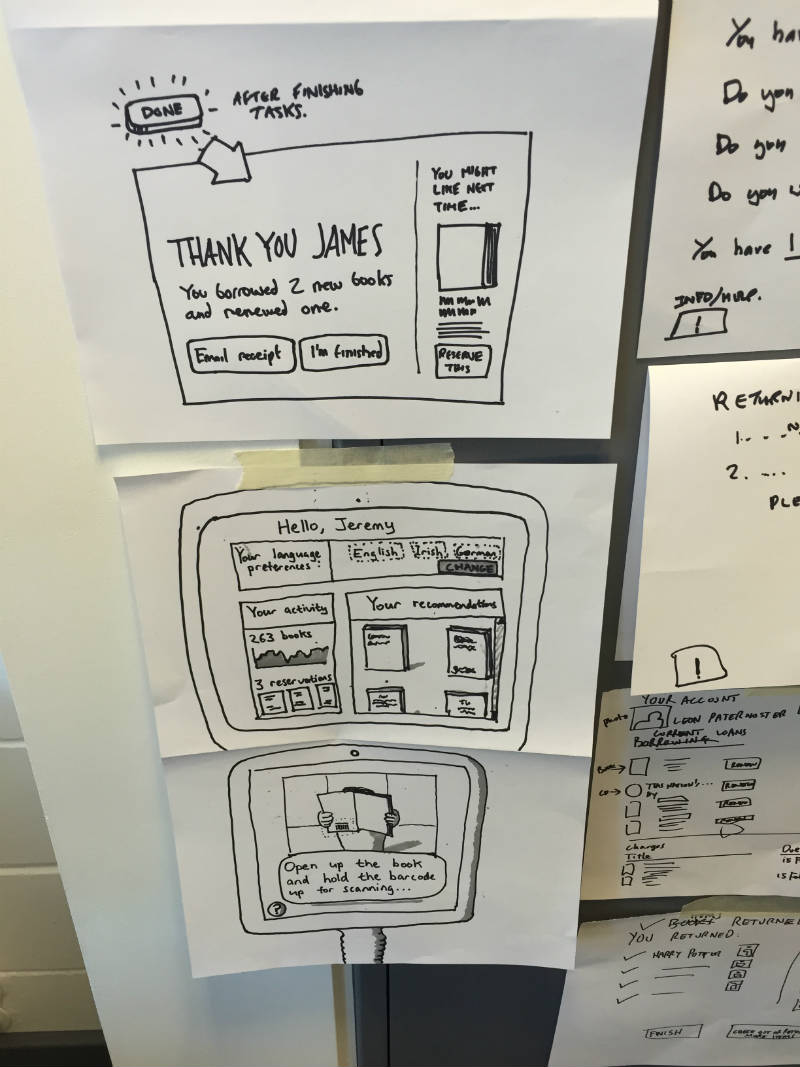 DONE
AFTER FINISHING
TASKS.
YOU MIGHT
LIKE NEXT
TIME...
THANK YOU JAMES
You borrowed 2 new books
and renewed one.
Email receipt
I'm finished
RESERVE
THIS
Hello, Jeremy
Your language
preferences:
English
Irish
German
CHANGE
Your activity
263 books
3 reservations
Your recommendations
Open up the book
and hold the barcode
up for scanning...
?
You
Do you
Do you
Do you
You have 1
INFO/HELP.
!
1.
2. ...
!
YOUR ACCOUNT
photo
LEON PATERNOSTER
CURRENT LOANS
BORROWING
RENEW
RENEW
RENEW
Charges
Title
RETURNED
YOU RETURNED:
HARRY POTTER
FINISH